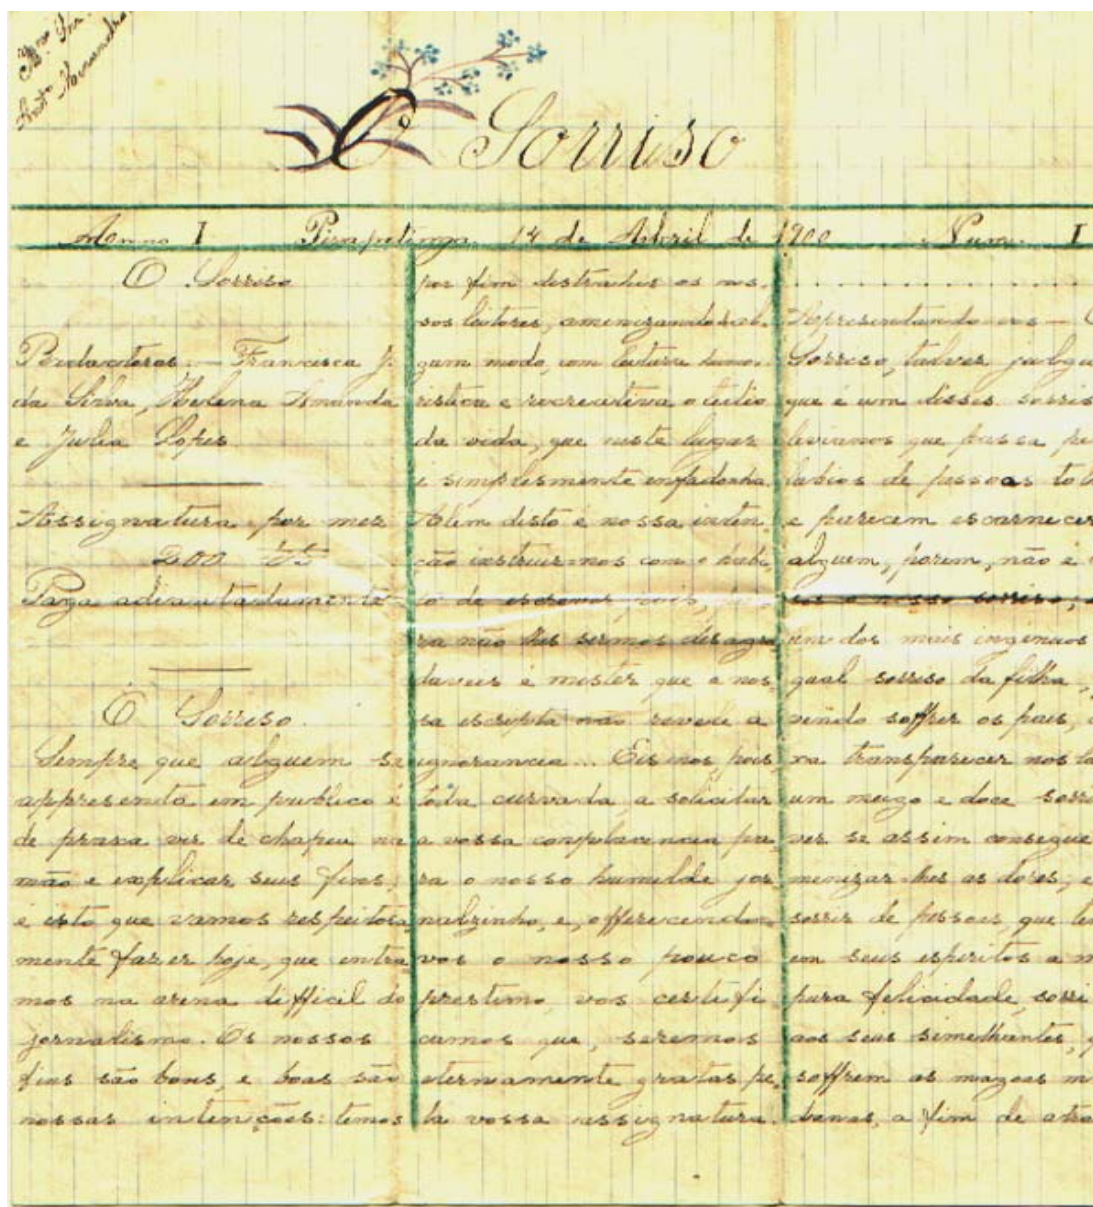 O Sorriso
Anno I Pirapetinga, 14 de Abril de 1900 Num. I
O Sorriso
Redactoras — Francisca J.
da Silva, Helena Amanda
e Julia Lopes
Assignatura por mez
200 rs
Paga adiantadamente
O Sorriso.
Sempre que alguem se
appresenta em publico é
de praxe vir de chapeu na
mão e explicar seus fins;
é isto que vamos respeitosa
mente fazer hoje, que entra
mos na arena difficil do
jornalismo. Os nossos
fins são bons, e boas são
nossas intenções: temos
por fim distrahir os nos-
sos leitores, amenizando d'al-
gum modo, com leitura humo-
ristica e recreativa o tedio
da vida, que neste lugar
é simplesmente enfadonha.
Alem disto é nossa inten-
ção instruir-nos com o habi-
to de escrever, pois, pa-
ra não lhes sermos desagra
daveis é mister que a nos-
sa escripta não revele a
ignorancia... Eis-nos pois,
toda curvada, a solicitar
a vossa complacencia pa
ra o nosso humilde jor
nalzinho, e, offerecendo-
vos o nosso pouco
prestimo, vos certifi
camos que, seremos
eternamente gratas pe-
la vossa assignatura.
. . . . . . . . . . . . . . . .
Apresentando-vos — O
Sorriso, talvez julgu
que é um desses sorris
levianos que passa pe
labios de pessoas tol
e parecem escarnecer
alguem, porem, não é
o nosso sorriso;
um dos mais ingenuos
qual sorriso da filha,
vendo soffrer os paes,
xa transparecer nos la
um meigo e doce sorri
ver se assim consegue
menizar-lhes as dores, e
sorrir de pessoas, que te
em seus espiritos a m
pura felicidade, sorri
aos seus similhantes, q
soffrem as magoas m
danas, a fim de atra